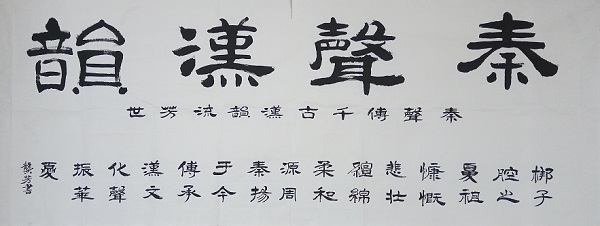 秦聲漢韻
秦聲傳千古漢韻流芳世
梆子
腔之
鼻祖
慷慨
悲壯
纏綿
柔和
源周
秦揚
于今
傳承
漢文
化聲
振華
夏
芳書